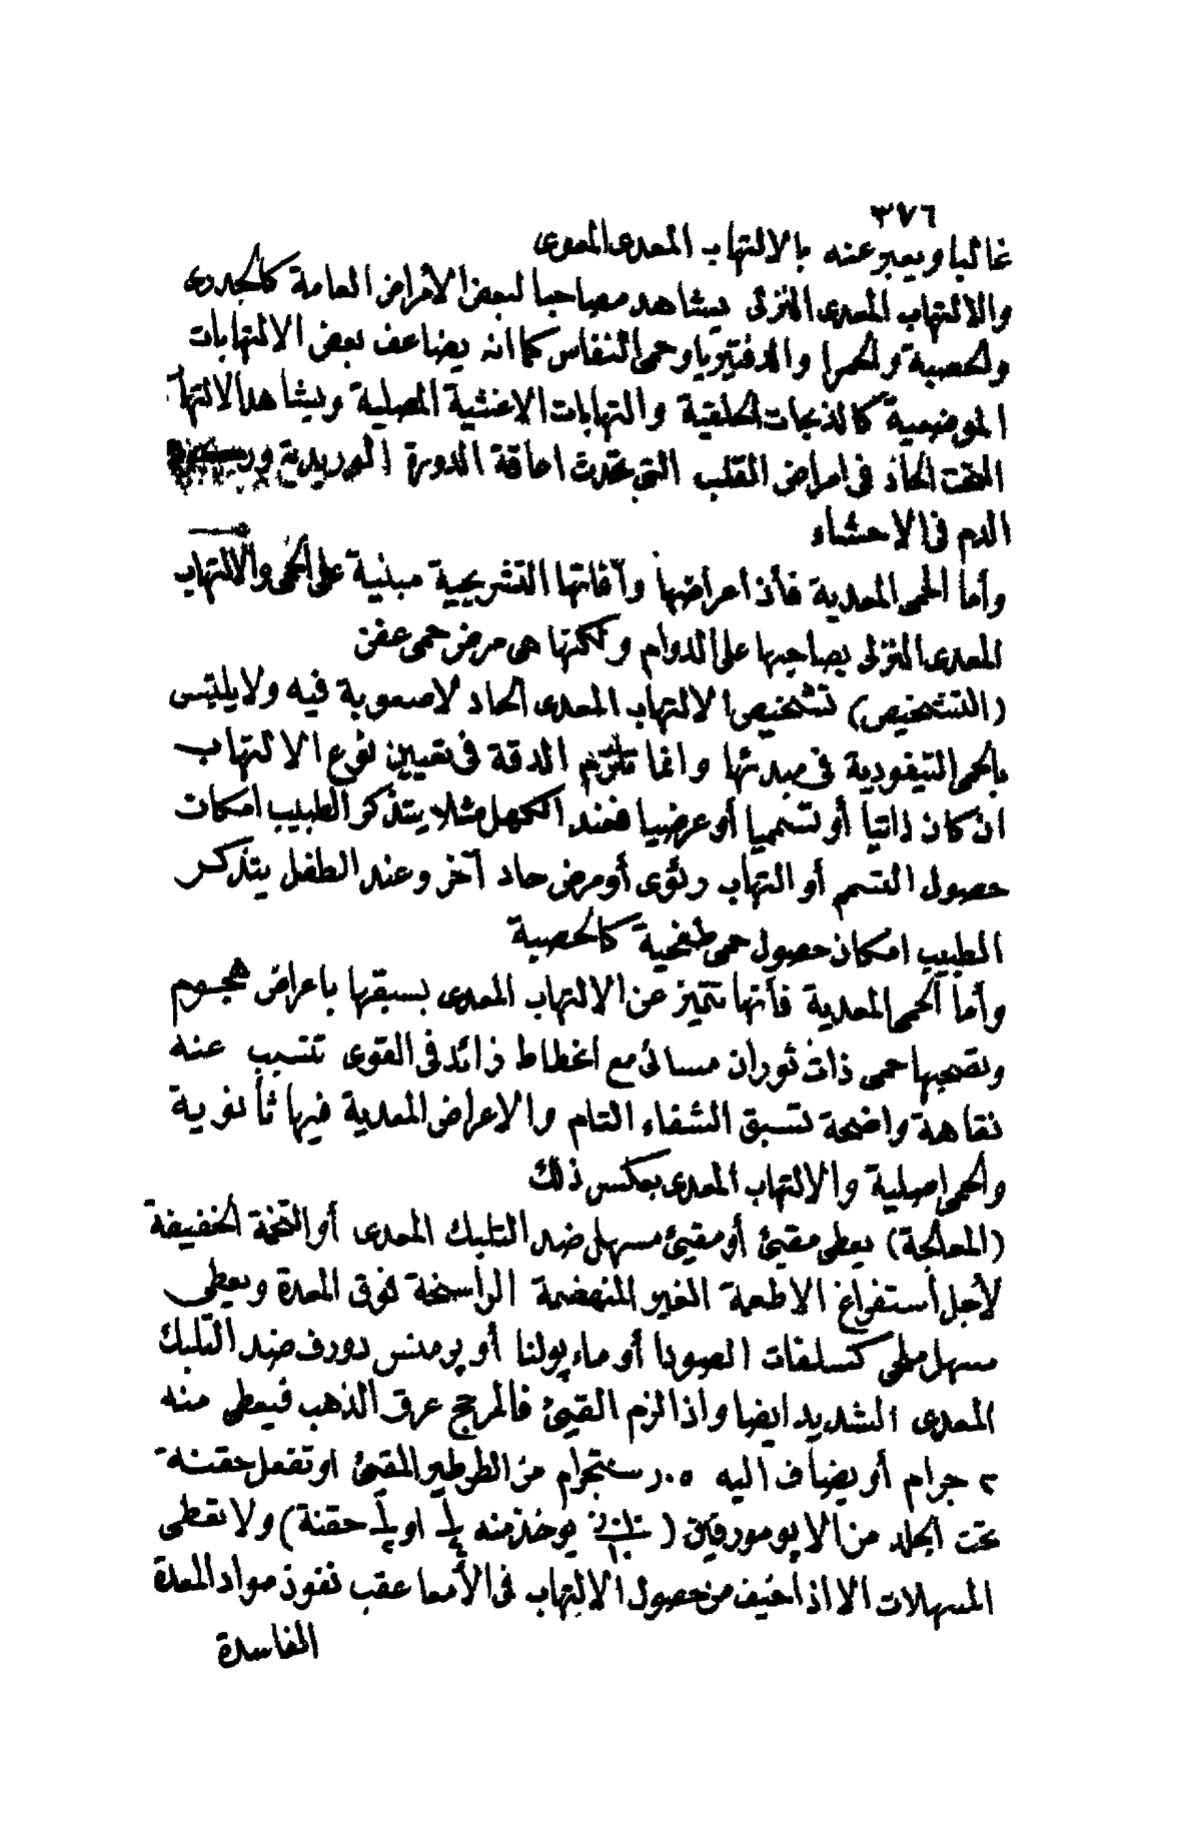 ٣٧٦
غالبا ويعبر عنه بالالتهاب المعدى المعوى
والالتهاب المعدى النزلى يشاهد مصاحبا لبعض الأمراض العامة كالجدرى
والحصبة والحمرا والدفتيريا وحمى النفاس كما انه يضاعف بعض الالتهابات
الموضعية كالذبحات الحلقية والتهابات الاغشية المصلية ويشاهد الالتها
التحت الحاد فى امراض القلب التى تحدث اعاقة الدورة الوريدية
الدم فى الاحشاء
وأما الحمى المعدية فأن أعراضها وآفاتها التشريحية مبنية على الحمى والالتهاب
المعدى النزلى يصاحبها على الدوام ولكنها هى مرض حمى عفن
(التشخيص) تشخيص الالتهاب المعدى الحاد لاصعوبة فيه ولا يلتبس
بالحمى التيفودية فى مبدئها وانما تلتزم الدقة فى تعيين نوع الالتهاب
ان كان ذاتيا أو تسمميا أو عرضيا فعند الكهل مثلا يتذكر الطبيب امكان
حصول التسمم أو التهاب رئوى أو مرض حاد آخر وعند الطفل يتذكر
الطبيب امكان حصول حمى طفحية كالحصبة
وأما الحمى المعدية فأنها تتميز عن الالتهاب المعدى بسبقها باعراض هجوم
وتصحبها حمى ذات ثوران مسائى مع انحطاط زائد فى القوى تتسبب عنه
نقاهة واضحة تسبق الشفاء التام والاعراض المعدية فيها ثانوية
والحمى اصلية والالتهاب المعدى بعكس ذلك
(المعالجة) يعطى مقيئ أو مقيئ مسهل ضد التلبك المعدى أو التخمة الخفيفة
لأجل أستفراغ الاطعمة الغير المنهضمة الراسخة فوق المعدة ويعطى
مسهل ملحى كسلفات الصودا أو ماء پولنا أو پرمنس دورف ضد التلبك
المعدى الشديد ايضا واذا لزم القيئ فالمرجح عرق الذهب فيعطى منه
٢ جرام أو يضاف اليه ٠٥ر سنتجرام من الطرطير المقيئ او تفعل حقنة
تحت الجلد من الاپومورفين ( يوخذ منه ١/٤ او ١/٢ حقنة) ولا تعطى
المسهلات الا اذا أخيف من حصول الالتهاب فى الأمعا عقب نفوذ مواد المعدة
الفاسدة